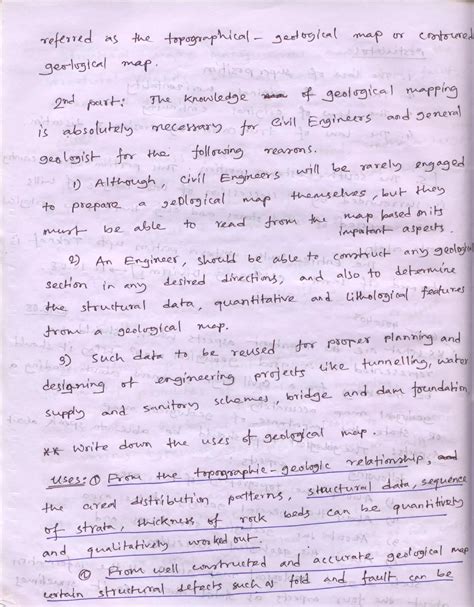 referred as the topographical - geological map or contoured
geological map.
2nd part: The knowledge of geological mapping
is absolutely necessary for Civil Engineers and general
geologist for the following reasons.
1) Although, Civil Engineers will be rarely engaged
to prepare a geological map themselves, but they
must be able to read from the map based on its
impotant aspects.
2) An Engineer, should be able to construct any geological
section in any desired directions, and also to determine
the structural data, quantitative and Lithological features
from a geological map.
3) Such data to be reused for proper planning and
designing of engineering projects like tunnelling, water
supply and sanitory schemes, bridge and dam foundation
** Write down the uses of geological map.
Uses: ① From the topographic - geologic relationship, and
the areal distribution patterns, structural data, sequence
of strata, thickness of rock beds can be quantitively
and qualitatively worked out.
② From well constructed and accurate geological map
certain structural defects such as fold and fault can be